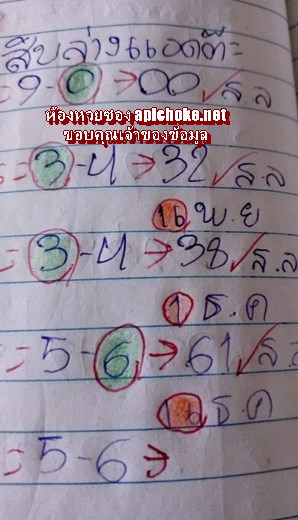 สิบล่างแอดดี=
=9-0→00✓ล.ล
ห้องหวยซอง apichoke.net
ขอบคุณเจ้าของข้อมูล
=3-4→32✓ล.ล
16 พ.ย
=3-4→38✓ล.ล
1 ธ.ค
=5-6→61✓ล.
16 ธ.ค
=5-6→